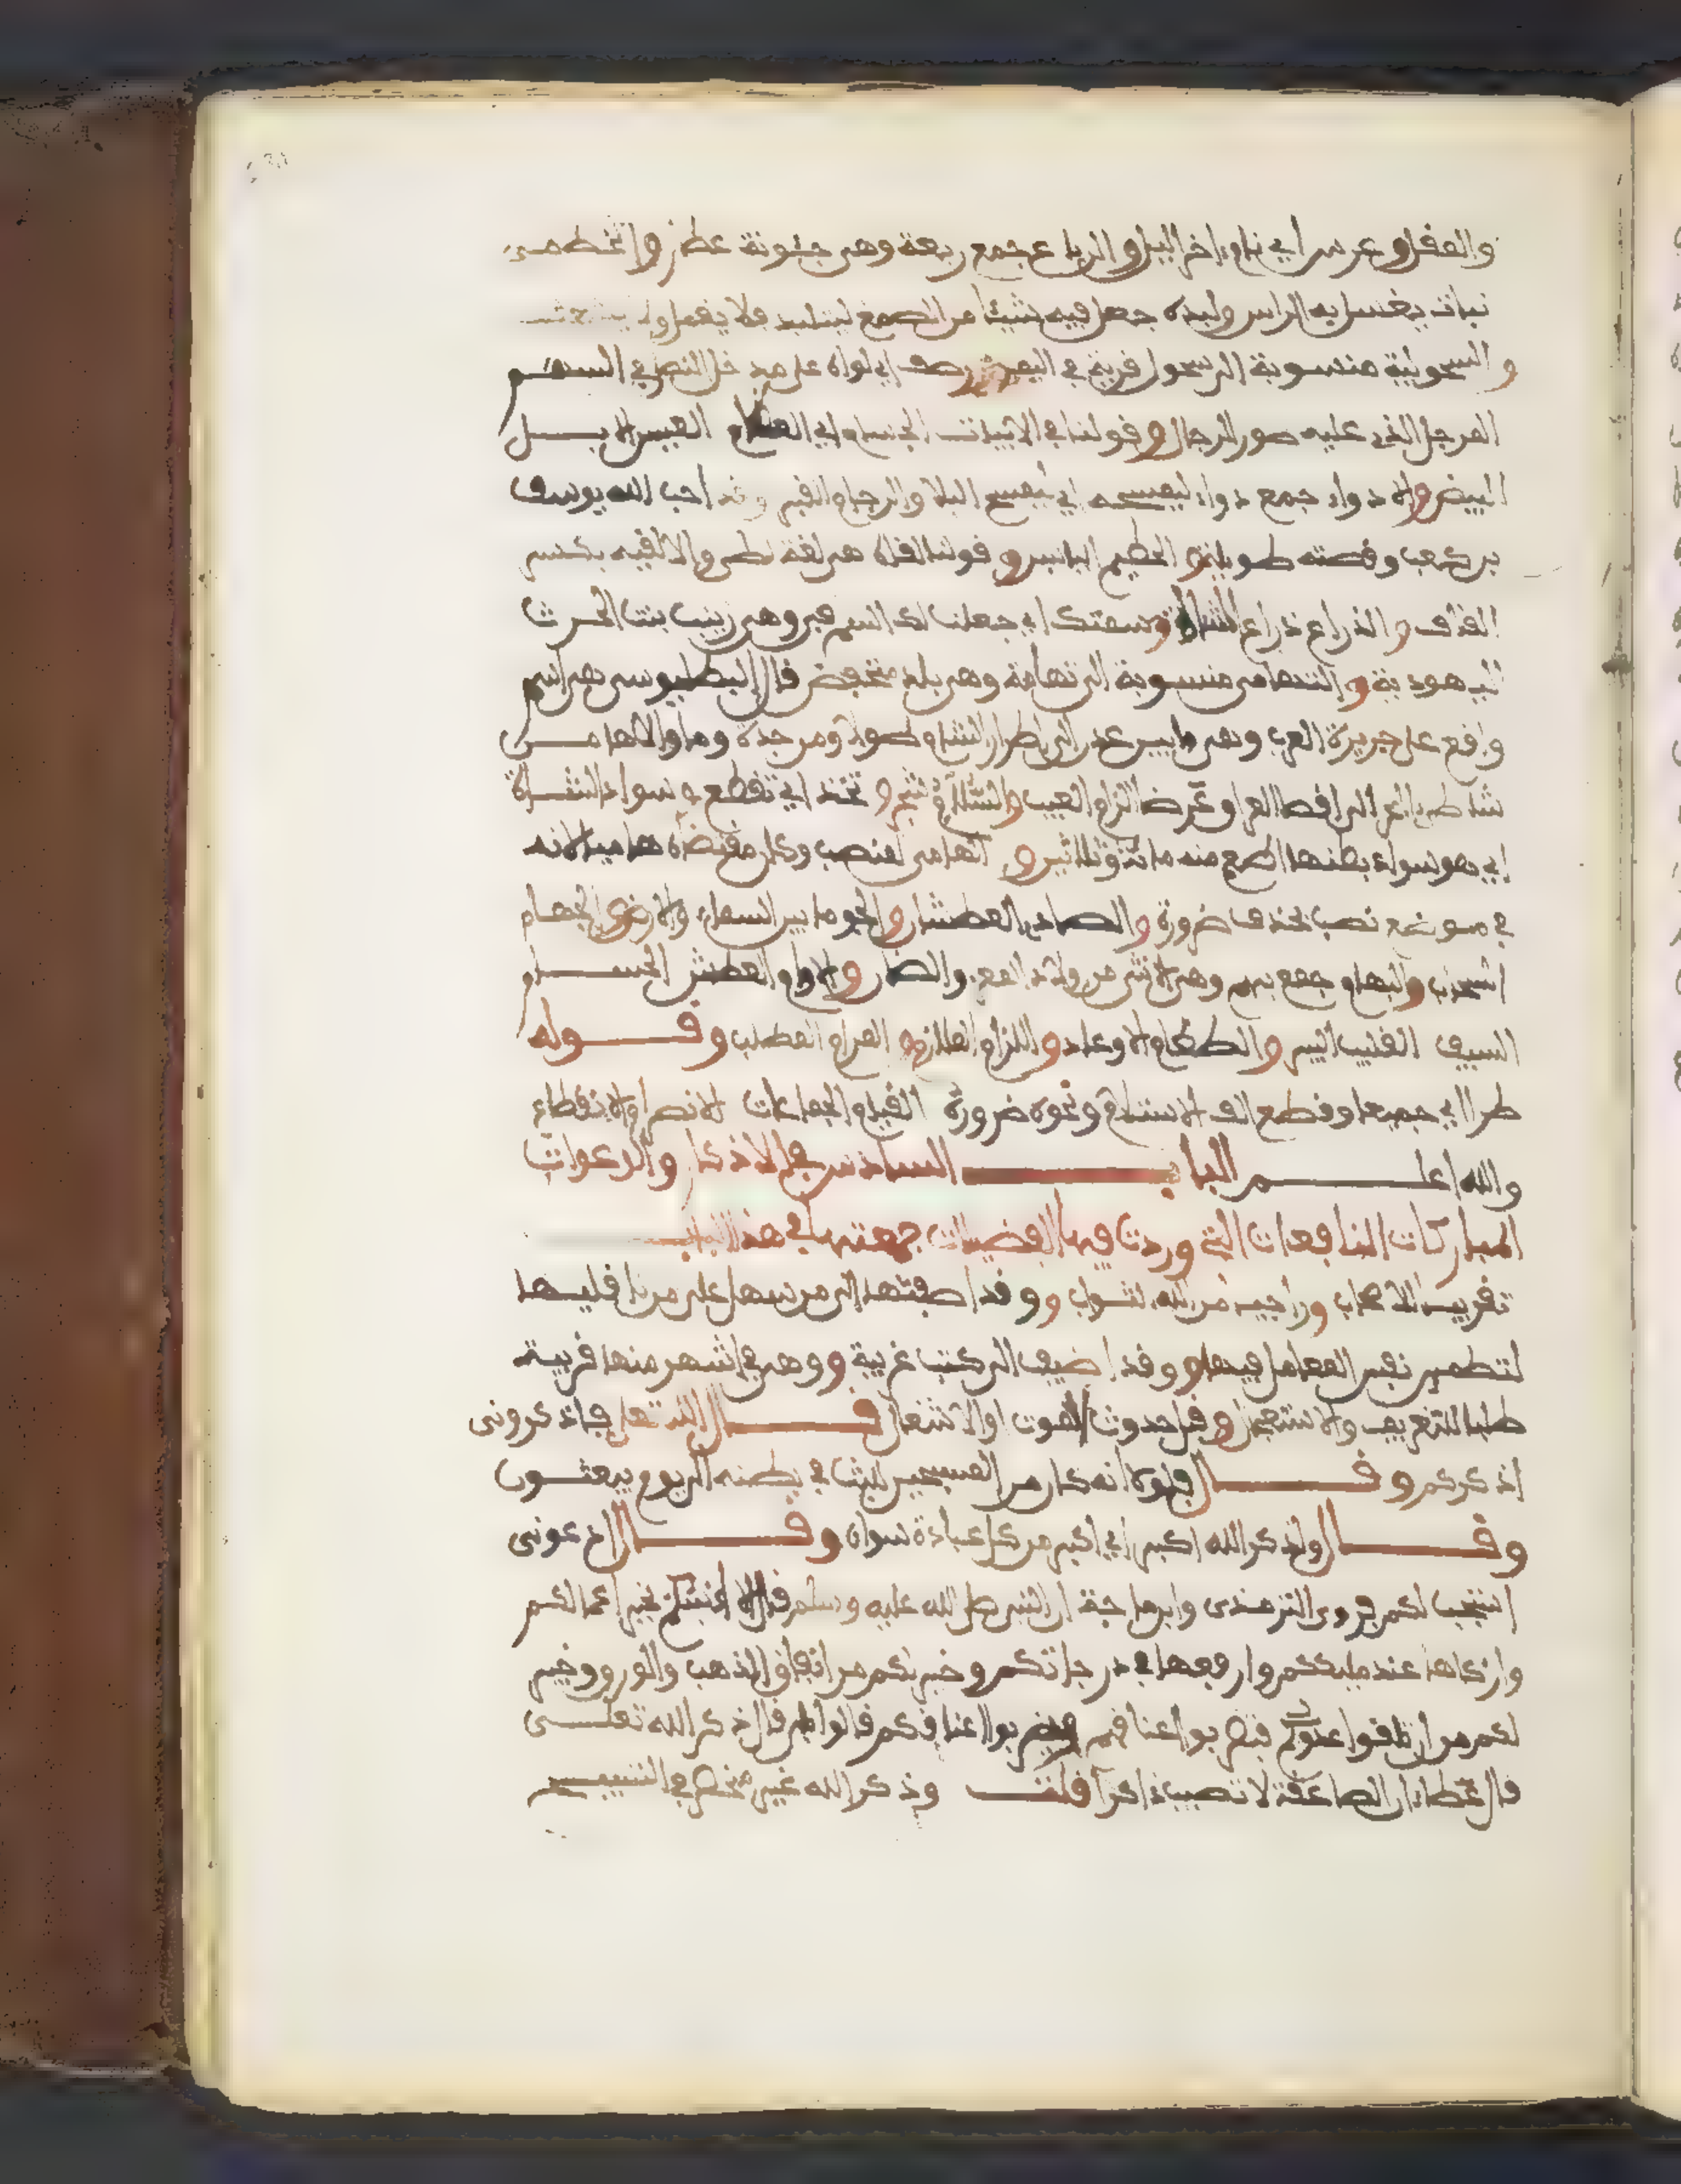 والعقل وعرس اي نام اخر الليل والرباع جمع ربعة وهي جئونة عطار والخطمى
نبات يغسل به الراس ولبده جعل فيه شيئا من الصمغ ليتلبد فلا يقمل ولا
والسحولية منسوبة الى سحول قرية في اليمن ورصف اي لواه على مدخل النصل في السهم
المرجل الذي عليه صور الرجال وقولنا في الابيات الحسام اي العيس الابل
البيض والادواء جمع دواء ليفسح اي ليفسح البلا والرجام القبر وقد احب الله يوسف
بن كعب وقصته طويلة الحطيم اليابس وقولنا الفلاه هي لغة طي والالقيه بكسر
القاف والذراع ذراع الشاة وسمتك اي جعلت لك السم فيه وهي زينب بنت الحرث
اليهودية والتهامى منسوبة الى تهامة وهي بلد منخفض قال البطليوسي هي اسم
واقع على جزيرة العرب وهي ما بين عدن الى اطرار الشام طولا ومن جدة وما والاها من
شاطئ البحر الى اقصا العراق عرضا الذام العيب والسلام شجر وتجتذ اي تقطع و سواد الشاة
اي هو سواد بطنها اطعم منه مائة وثلاثين و لمنصب وكل
في موضع نصب فحذف ضرورة والصادي العطشان والجو ما بين السماء والارض والجهام
السحاب والبهام جمع بهم وهي الانثى من ولد المعز والضأن والاوام العطش الحسام
السيف القليب البير والطغام الاوغاد واللزام الملازمة المرام المطلب وقوله
طرا اي جميعا وقطع الف الاستلام ونحوه ضرورة الفيام الجماعات الانصرام الانقطاع
والله اعلم الباب السادس في الاذكار والدعوات
المباركات النافعات التي وردت فيها الفضيلات جمعتها في هذا الباب
تقريبا للاصحاب وراجيا من الله الثواب وقد اضفتها الى من نقلها على من ناقليها
لتطمين نفس العامل فيها وقد اضيف الى كتب غريبة وهي في اشهر منها قريبة
طلبا للتغريب والاستعجال قبل حدوث الموت او الاشتغال قال الله تعالى فاذكروني
اذكركم وقال فلولا انه كان من المسبحين للبث في بطنه الى يوم يبعثون
وقال ولذكر الله اكبر اي اكبر من كل عبادة سواه وقال ادعوني
استجب لكم فروى الترمذى وابن ماجة ان النبي صلى الله عليه وسلم قال الا انبئكم بخير اعمالكم
وازكاها عند مليككم وارفعها في درجاتكم وخير لكم من انفاق الذهب والورق وخير
لكم من ان تلقوا عدوكم فتضربوا اعناقهم ويضربوا اعناقكم قالوا بلى قال ذكر الله تعلى
قال عطاء ان الصاعقة لا تصيب ذاكرا قلت وذكر الله غير منحصر في التسبيح